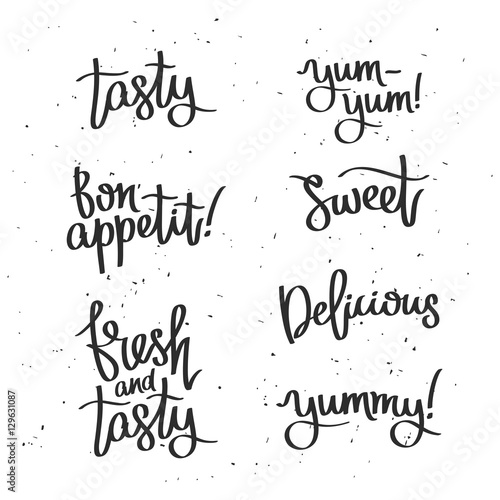 tasty
bon
appetit!
fresh
and
tasty
yum-
yum!
Sweet
Delicious
yummy!
Adobe Stock | #129631087